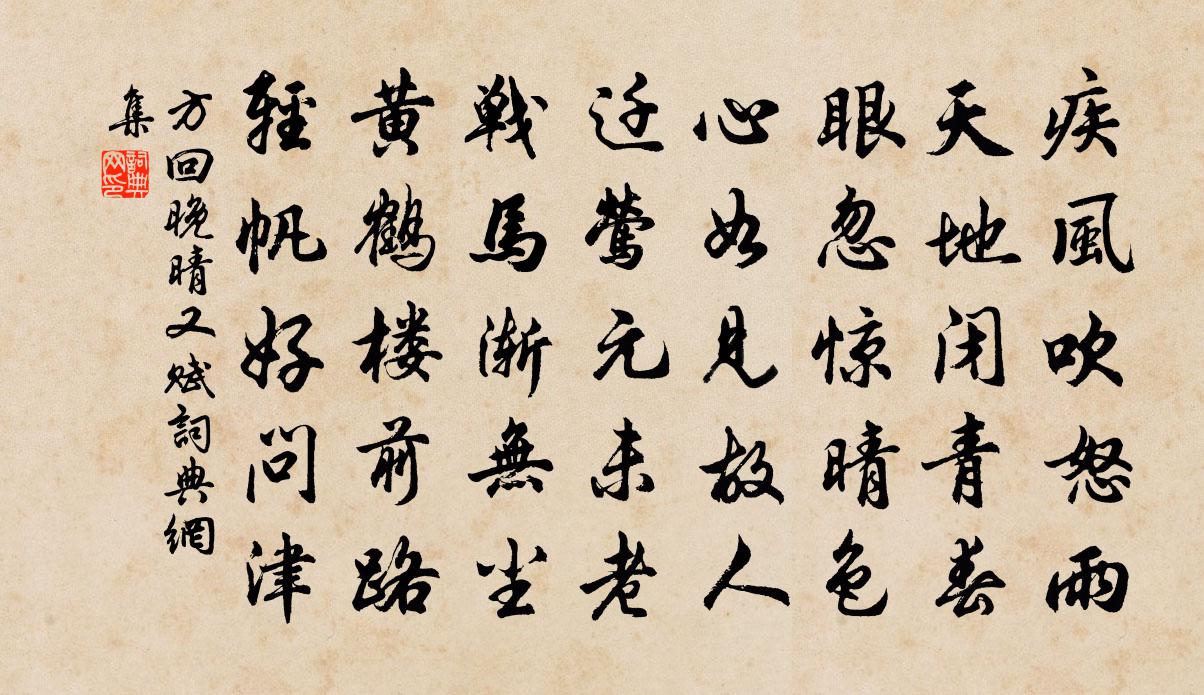 疾風吹怒雨
天地闭青春
眼忽惊晴色
心如見故人
迁鶯元未老
戦馬渐無尘
黄鶴楼前路
輕帆好问津
方回晚晴又赋詞典網
集
詞典网印